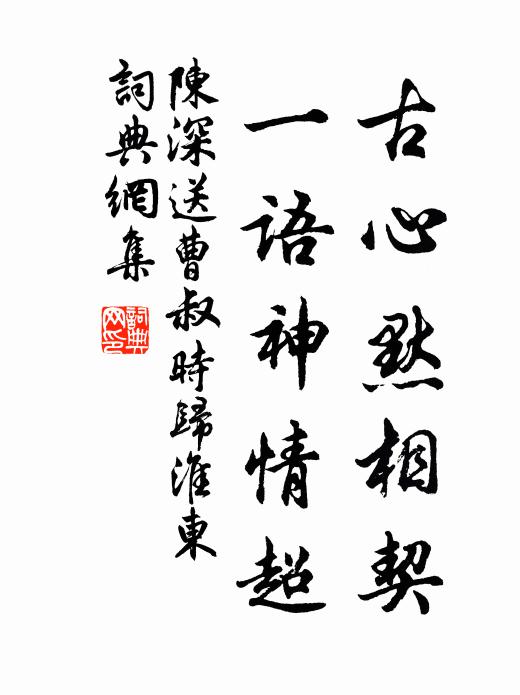 古心默相契
一語神情超
陳深送曹叔時歸淮東
詞典網集
詞典网印